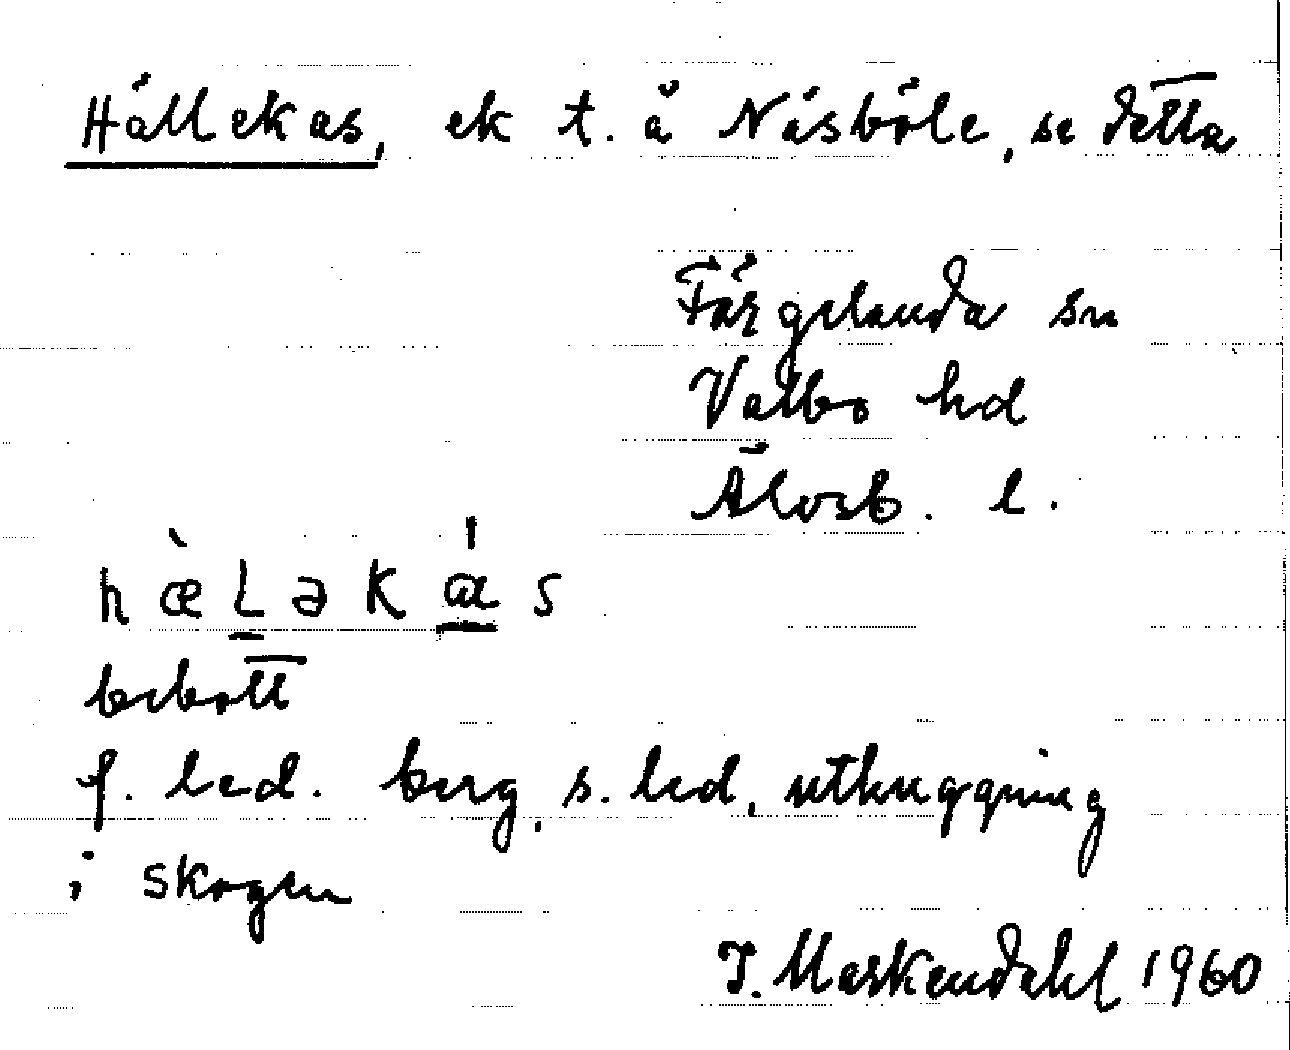 Hällekas, ek t. å Näsböle, se detta
Färgelanda sn
Valbo hd
Älvsb. l.
hæ̀Ləkás
bebott
f. led. berg, s. led, uthuggning
i skogen
I. Markendahl 1960